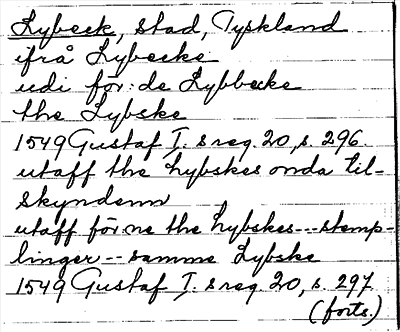 Lybeck, stad, Tyskland
ifrå Lybecke
udi för:de Lybbecke
the Lybske
1549 Gustaf I. s reg. 20, s. 296.
utaff the Lybskes onda til-
skyndenn
utaff för:ne the Lybskes---stemp-
linger--samme Lybske
1549 Gustaf I. s reg. 20, s. 297
(forts.)